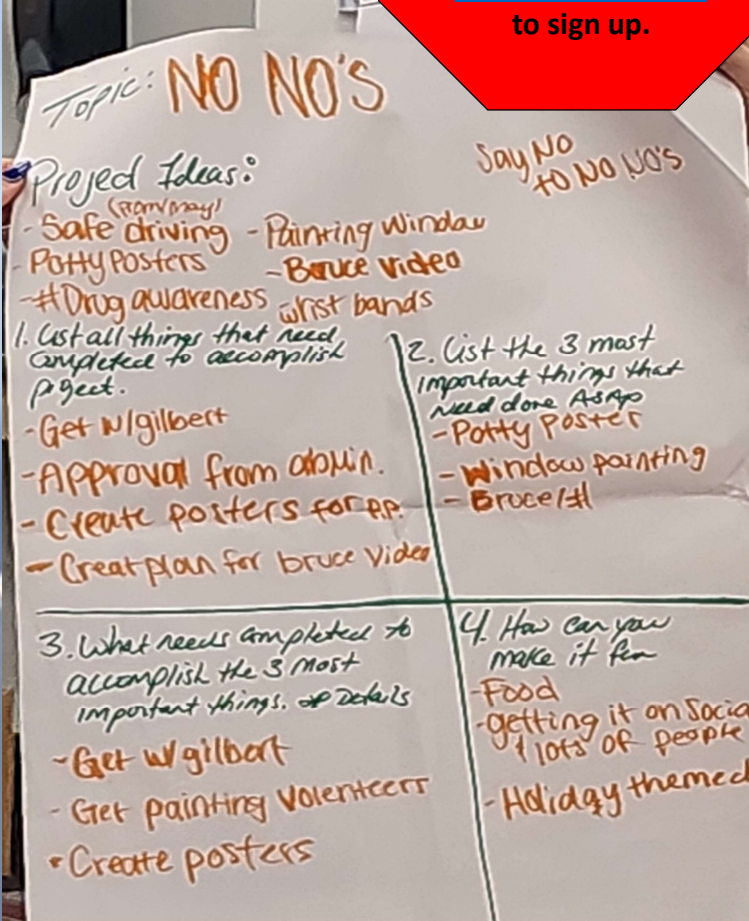 to sign up.
Topic: NO NO'S
Say NO
to NO NO'S
Project Ideas:
(Prom/May)
- Safe driving - Painting Window
- Potty Posters - Bruce Video
- #Drug awareness wrist bands
1. List all things that need
completed to accomplish
project.
- Get w/gilbert
- Approval from admin.
- Create posters for p.p.
- Creat plan for bruce video
2. List the 3 most
important things that
need done ASAP
- Potty Poster
- Window painting
- Bruce/#
3. What needs completed to
accomplish the 3 most
important things. Details
- Get w/ gilbert
- Get painting volenteers
• Create posters
4. How can you
make it fun
- Food
- getting it on Socia
& lots of people
- Holiday themed